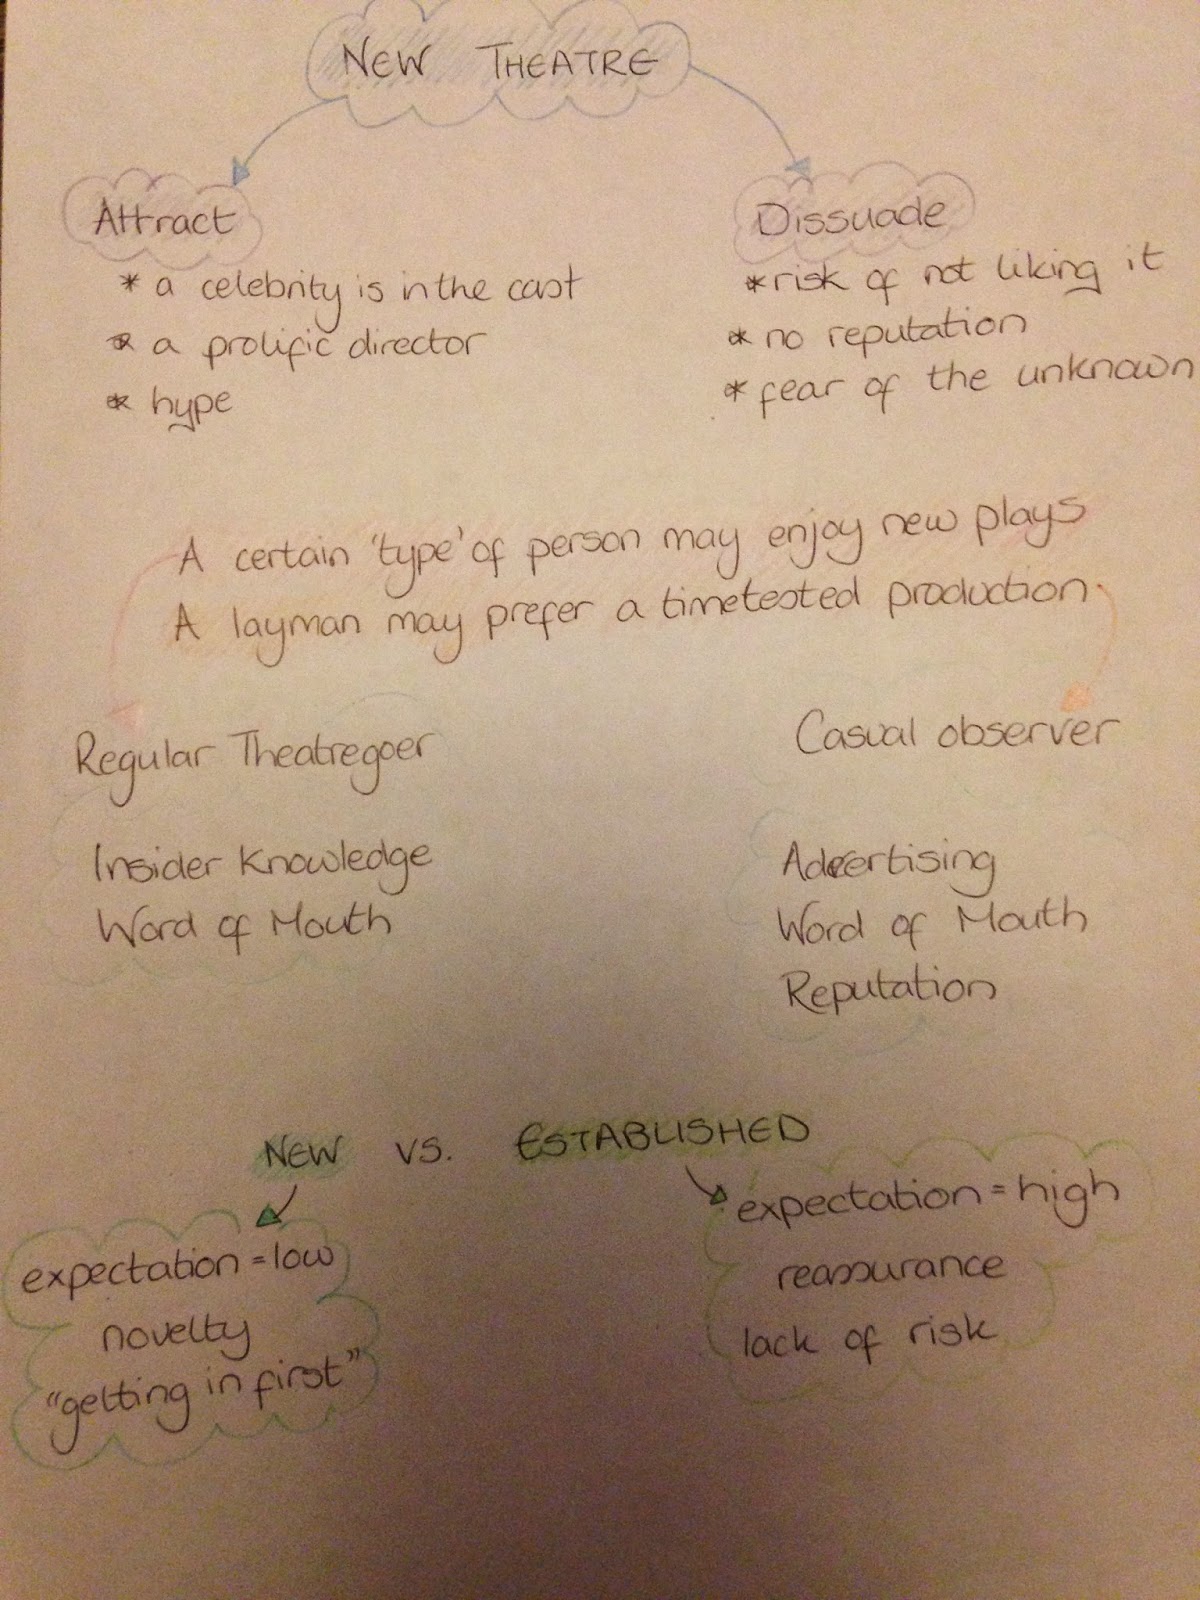 NEW THEATRE
Attract
* a celebrity is in the cast
* a prolific director
* hype
Dissuade
* risk of not liking it
* no reputation
* fear of the unknown
A certain 'type' of person may enjoy new plays
A layman may prefer a timetested production
Regular Theatregoer
Insider Knowledge
Word of Mouth
Casual observer
Advertising
Word of Mouth
Reputation
NEW vs. ESTABLISHED
expectation = low
novelty
"getting in first"
expectation = high
reassurance
lack of risk